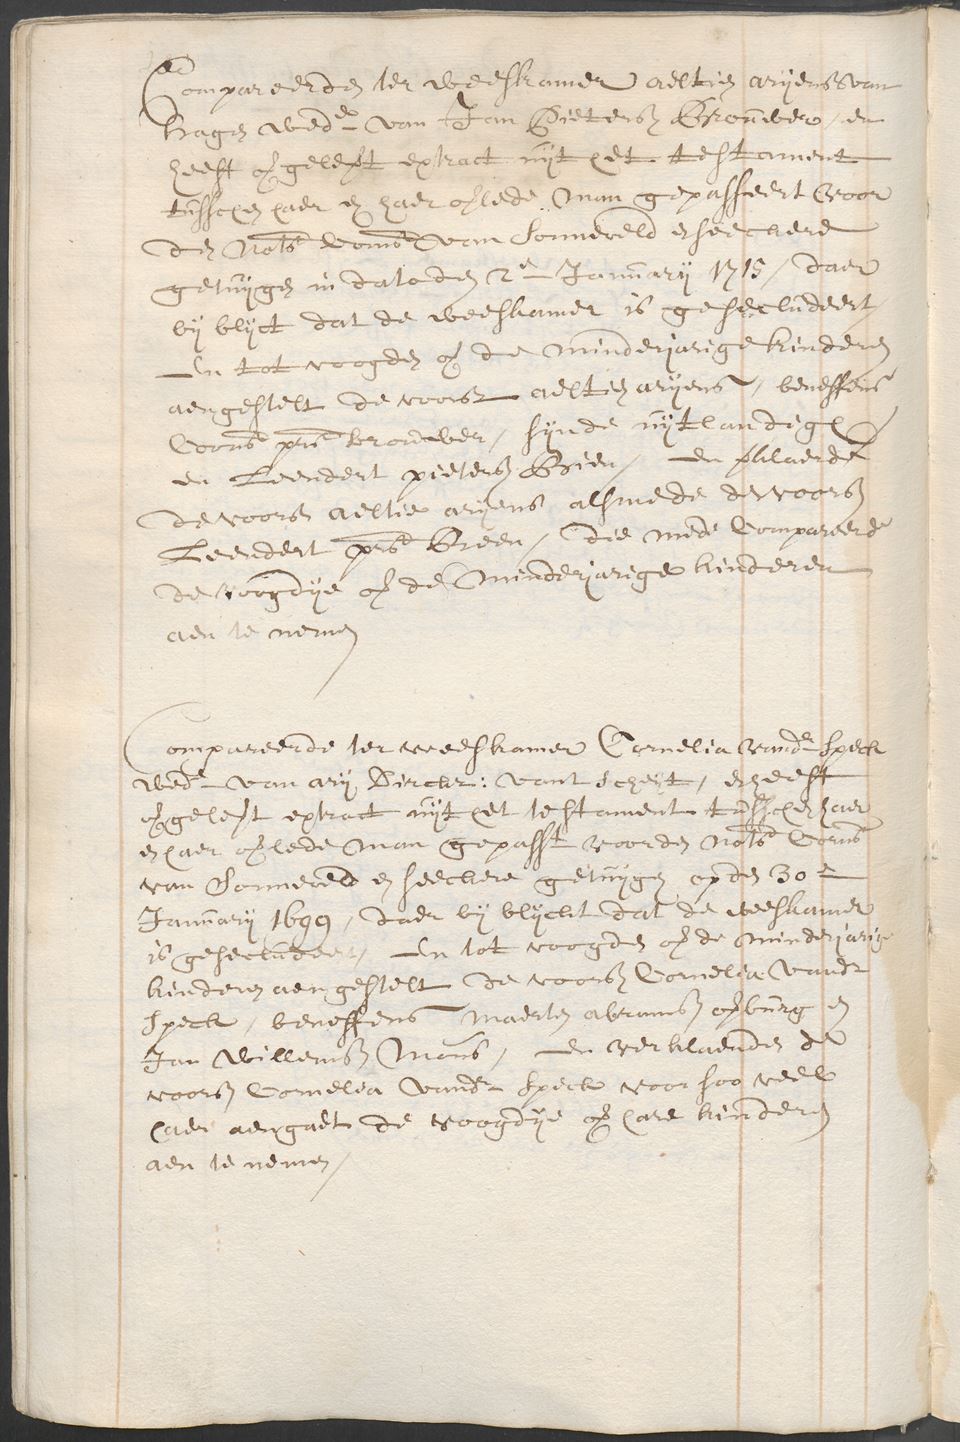 Compareerde ter weeskamer aeltie arijens van
hage wede van Jan Pieters Brouwer, en
heeft opgeleijt extract uijt het testament
tusschen haer en haer overlede man gepasseert voor
de Nots Corns van Sonneveld en seeckere
getuijgen in dato den 2e Januarij 1715, daer
bij blijct dat de weeskamer is geseecludeert
en tot voogden over de minderjarige kinderen
aengestelt de voorsz aeltie arijens, beneffens
Corns prs brouwer, sijnde uijtlandigh
en Leendert pieters Breen, en verklaerde
de voorsz aeltie arijens alsmede de voorsz
Leendert prs Breen, die mede Compareerde
de voogdije over de minderjarige kinderen
aen te nemen

Compareerde ter weeskamer Cornelia vandr Speck
wede van arij Dirckx: vant Scheijt, en heeft
overgeleijt extract uijt het testament tusschen haer
en haer overlede man gepasst voor de Nots Corns
van Sonneveld en seeckere getuijgen op den 30e
Januarij 1699, daer bij blijckt dat de weeskamer
is geseecludeert, en tot voogden over de minderjarige
kinderen aengestelt de voorsz Cornelia vandr
Speck, beneffens Maerten abrams opburg en
Jan Willemsz Mons, en verklaende de
voorsz Cornelia vandr Speck voor soo veel
haer aengaet de voogdije over hare kinderen
aen te nemen